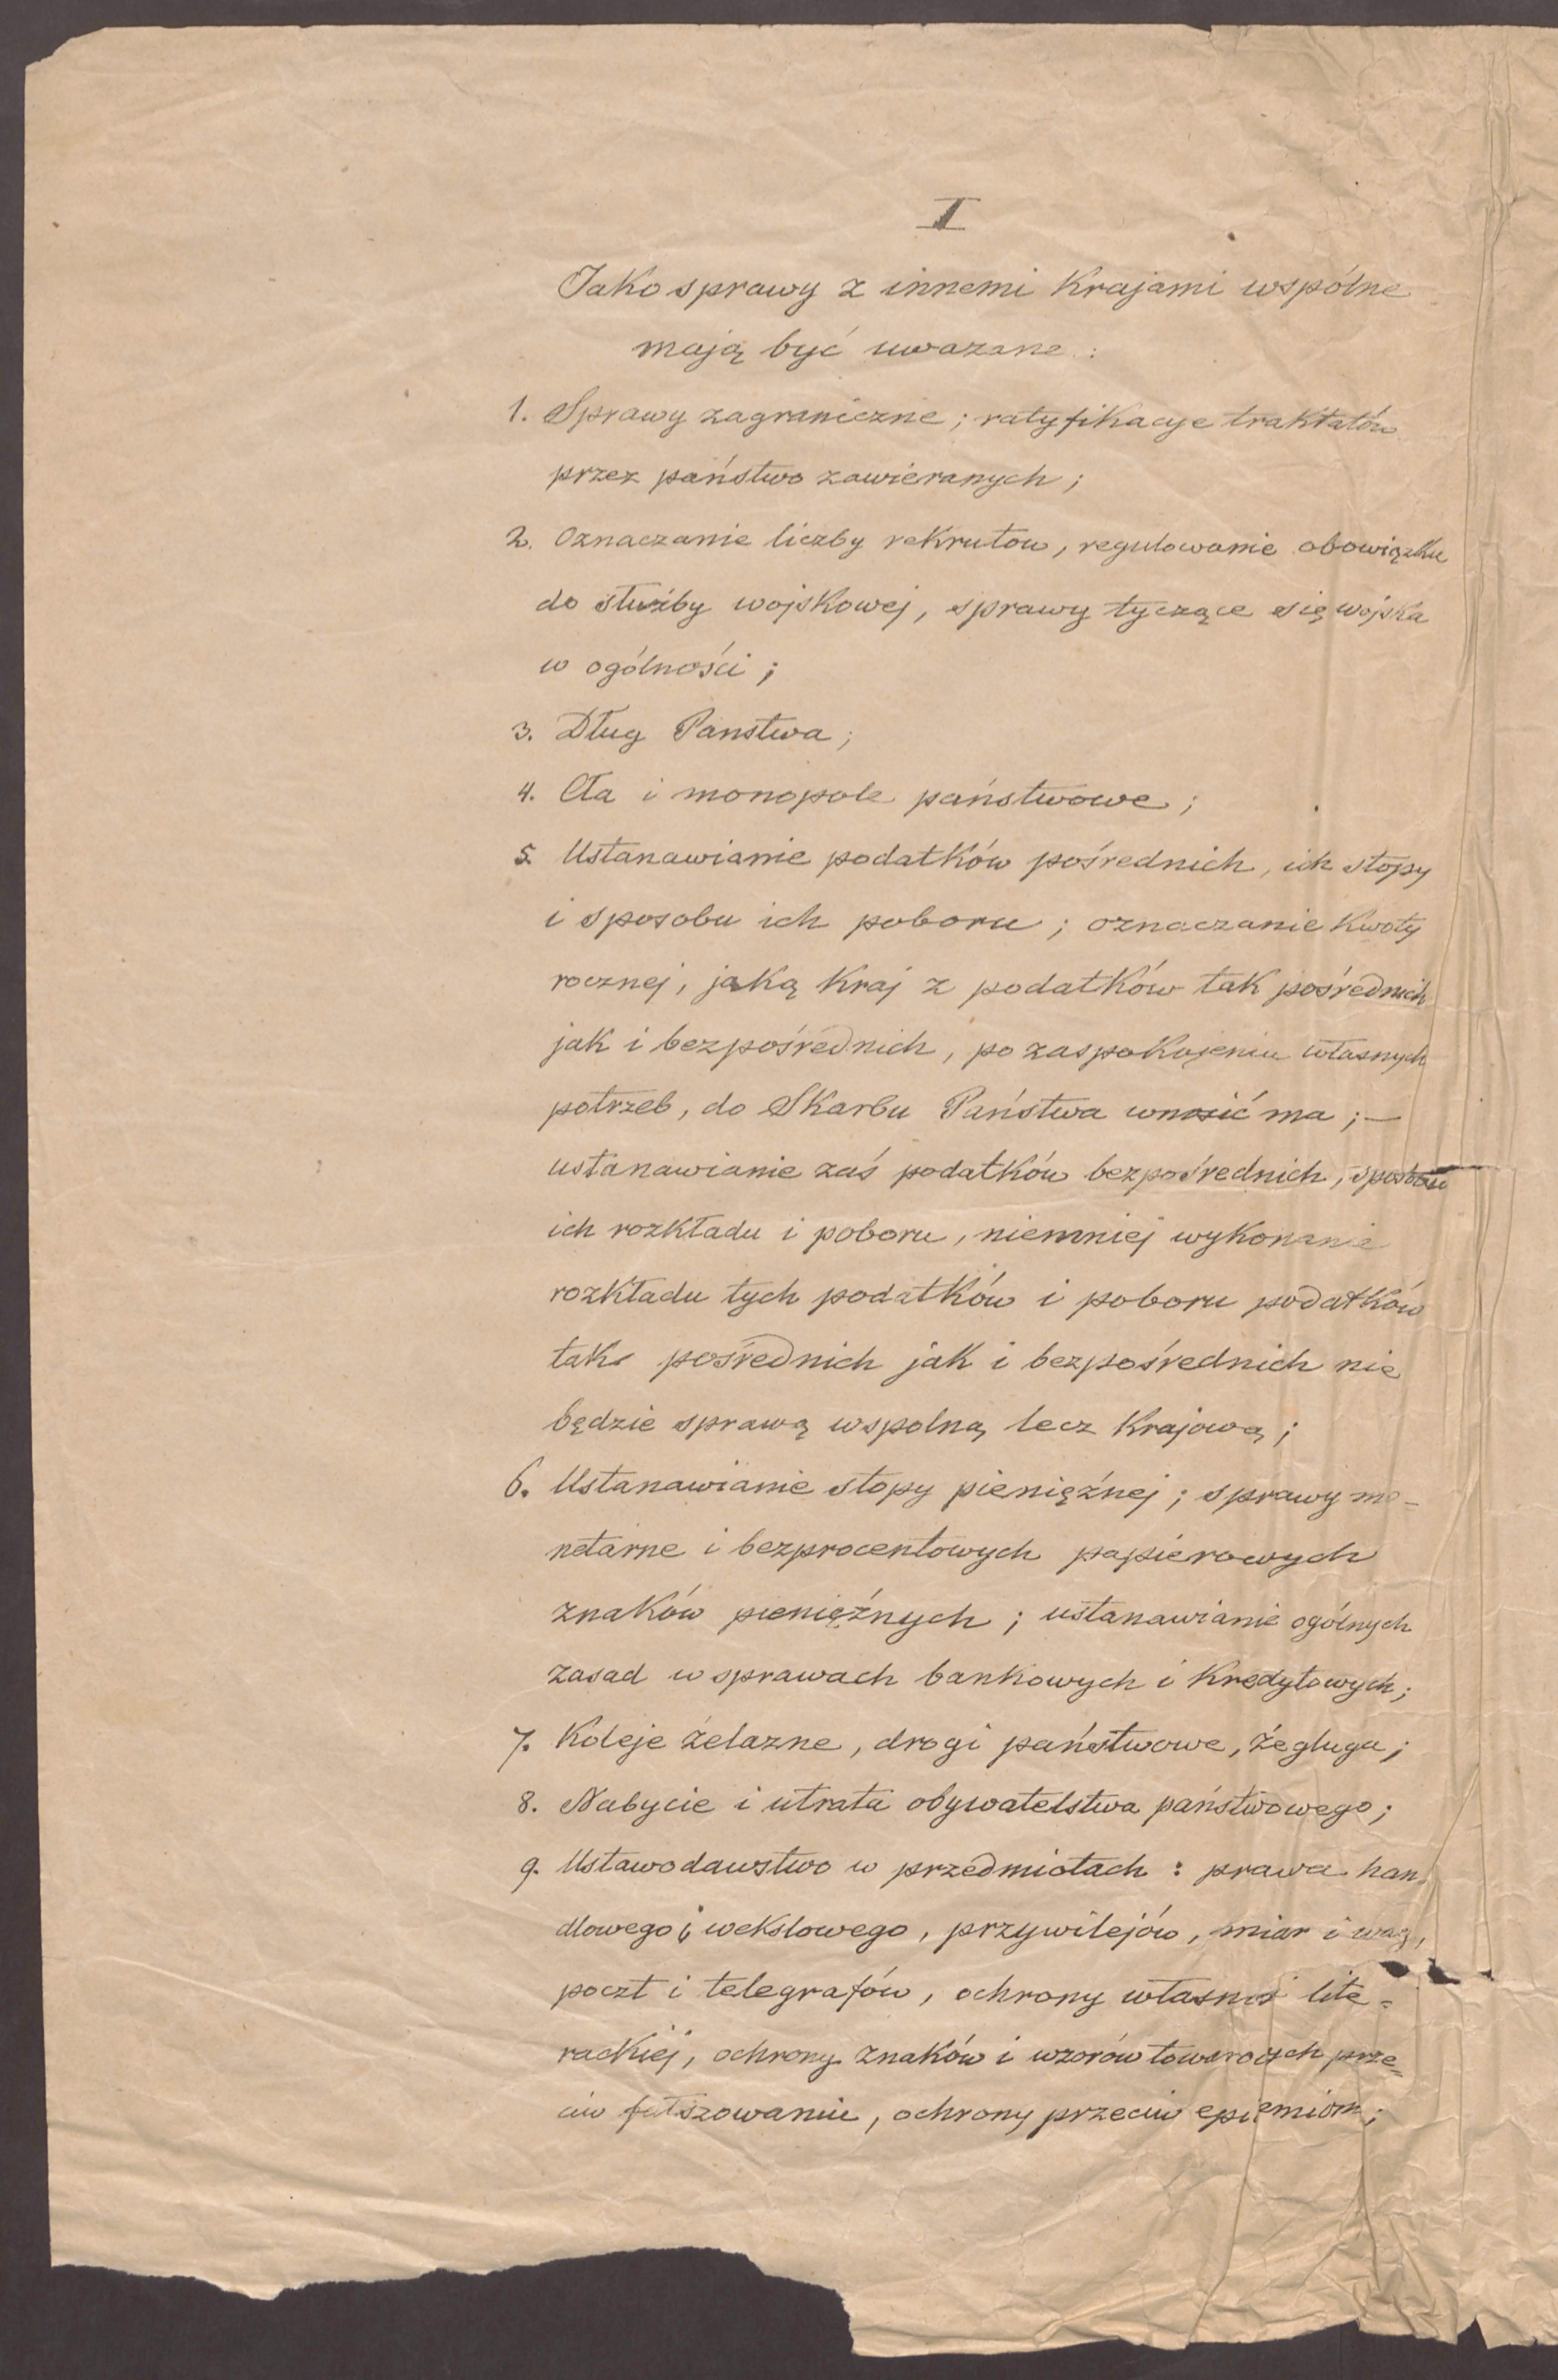 I
Jako sprawy z innemi Krajami wspólne
mają być uwazane :
1. Sprawy zagraniczne ; ratyfikacye traktatów
przez państwo zawieranych ;
2. Oznaczanie liczby rekrutow, regulowanie obowiązku
do służby wojskowej, sprawy tyczące się wojska
w ogólności ;
3. Dług Panstwa ;
4. Cła i monopole państwowe ;
5. Ustanawianie podatków pośrednich, ich stopy
i sposobu ich poboru ; oznaczanie Kwoty
rocznej, jaką Kraj z podatków tak pośrednich
jak i bezpośrednich, po zaspokojeniu własnych
potrzeb, do Skarbu Państwa wnosić ma ; —
ustanawianie zaś podatków bezpośrednich, sposobu
ich rozkładu i poboru, niemniej wykonanie
rozkładu tych podatków i poboru podatków
tak pośrednich jak i bezpośrednich nie
będzie sprawą wspolną lecz Krajową ;
6. Ustanawianie stopy pieniężnej ; sprawy mo-
netarne i bezprocentowych papierowych
znaków pieniężnych ; ustanawianie ogólnych
zasad w sprawach bankowych i Kredytowych ;
7. Koleje żelazne, drogi państwowe, żegluga ;
8. Nabycie i utrata obywatelstwa państwowego ;
9. Ustawodawstwo w przedmiotach : prawa han-
dlowego i wekslowego, przywilejów, miar i wag,
poczt i telegrafów, ochrony własnoś lite=
rackiej, ochrony znaków i wzorów towarowych prze=
ciw fałszowaniu, ochrony przeciw epidemiom ;